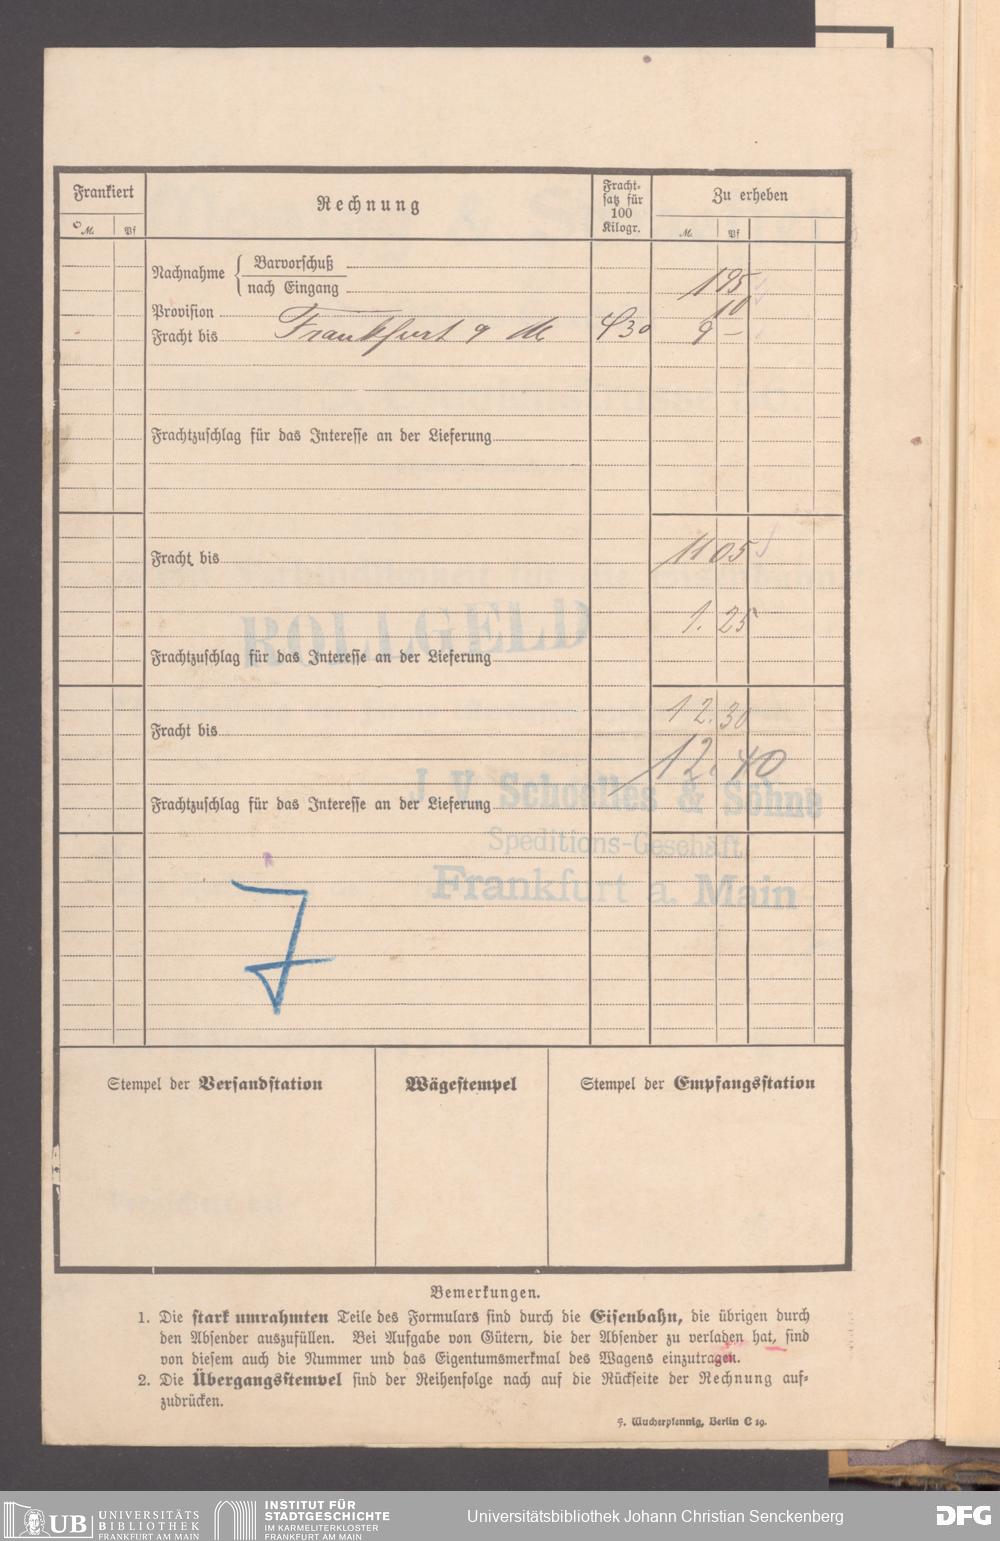 Frankiert
Rechnung
Fracht-
satz für
100
Kilogr.
Zu erheben
M. Pf
M. Pf
Nachnahme { Barvorschuß
nach Eingang 1 95
Provision 10
Fracht bis Frankfurt a M 430 9 –
Frachtzuschlag für das Interesse an der Lieferung
Fracht bis
11 05
1. 25
ROLLGELD
Frachtzuschlag für das Interesse an der Lieferung
12. 30
Fracht bis
12. 40
J. V. Schoelles & Söhne
Frachtzuschlag für das Interesse an der Lieferung
Speditions-Geschäft,
Frankfurt a. Main
7
Stempel der Versandstation
Wägestempel
Stempel der Empfangsstation
Bemerkungen.
1. Die stark umrahmten Teile des Formulars sind durch die Eisenbahn, die übrigen durch
den Absender auszufüllen. Bei Aufgabe von Gütern, die der Absender zu verladen hat, sind
von diesem auch die Nummer und das Eigentumsmerkmal des Wagens einzutragen.
2. Die Übergangsstempel sind der Reihenfolge nach auf die Rückseite der Rechnung auf-
zudrücken.
F. Wucherpfennig, Berlin C 19.
UB UNIVERSITÄTS
BIBLIOTHEK
FRANKFURT AM MAIN
INSTITUT FÜR
STADTGESCHICHTE
IM KARMELITERKLOSTER
FRANKFURT AM MAIN
Universitätsbibliothek Johann Christian Senckenberg
DFG